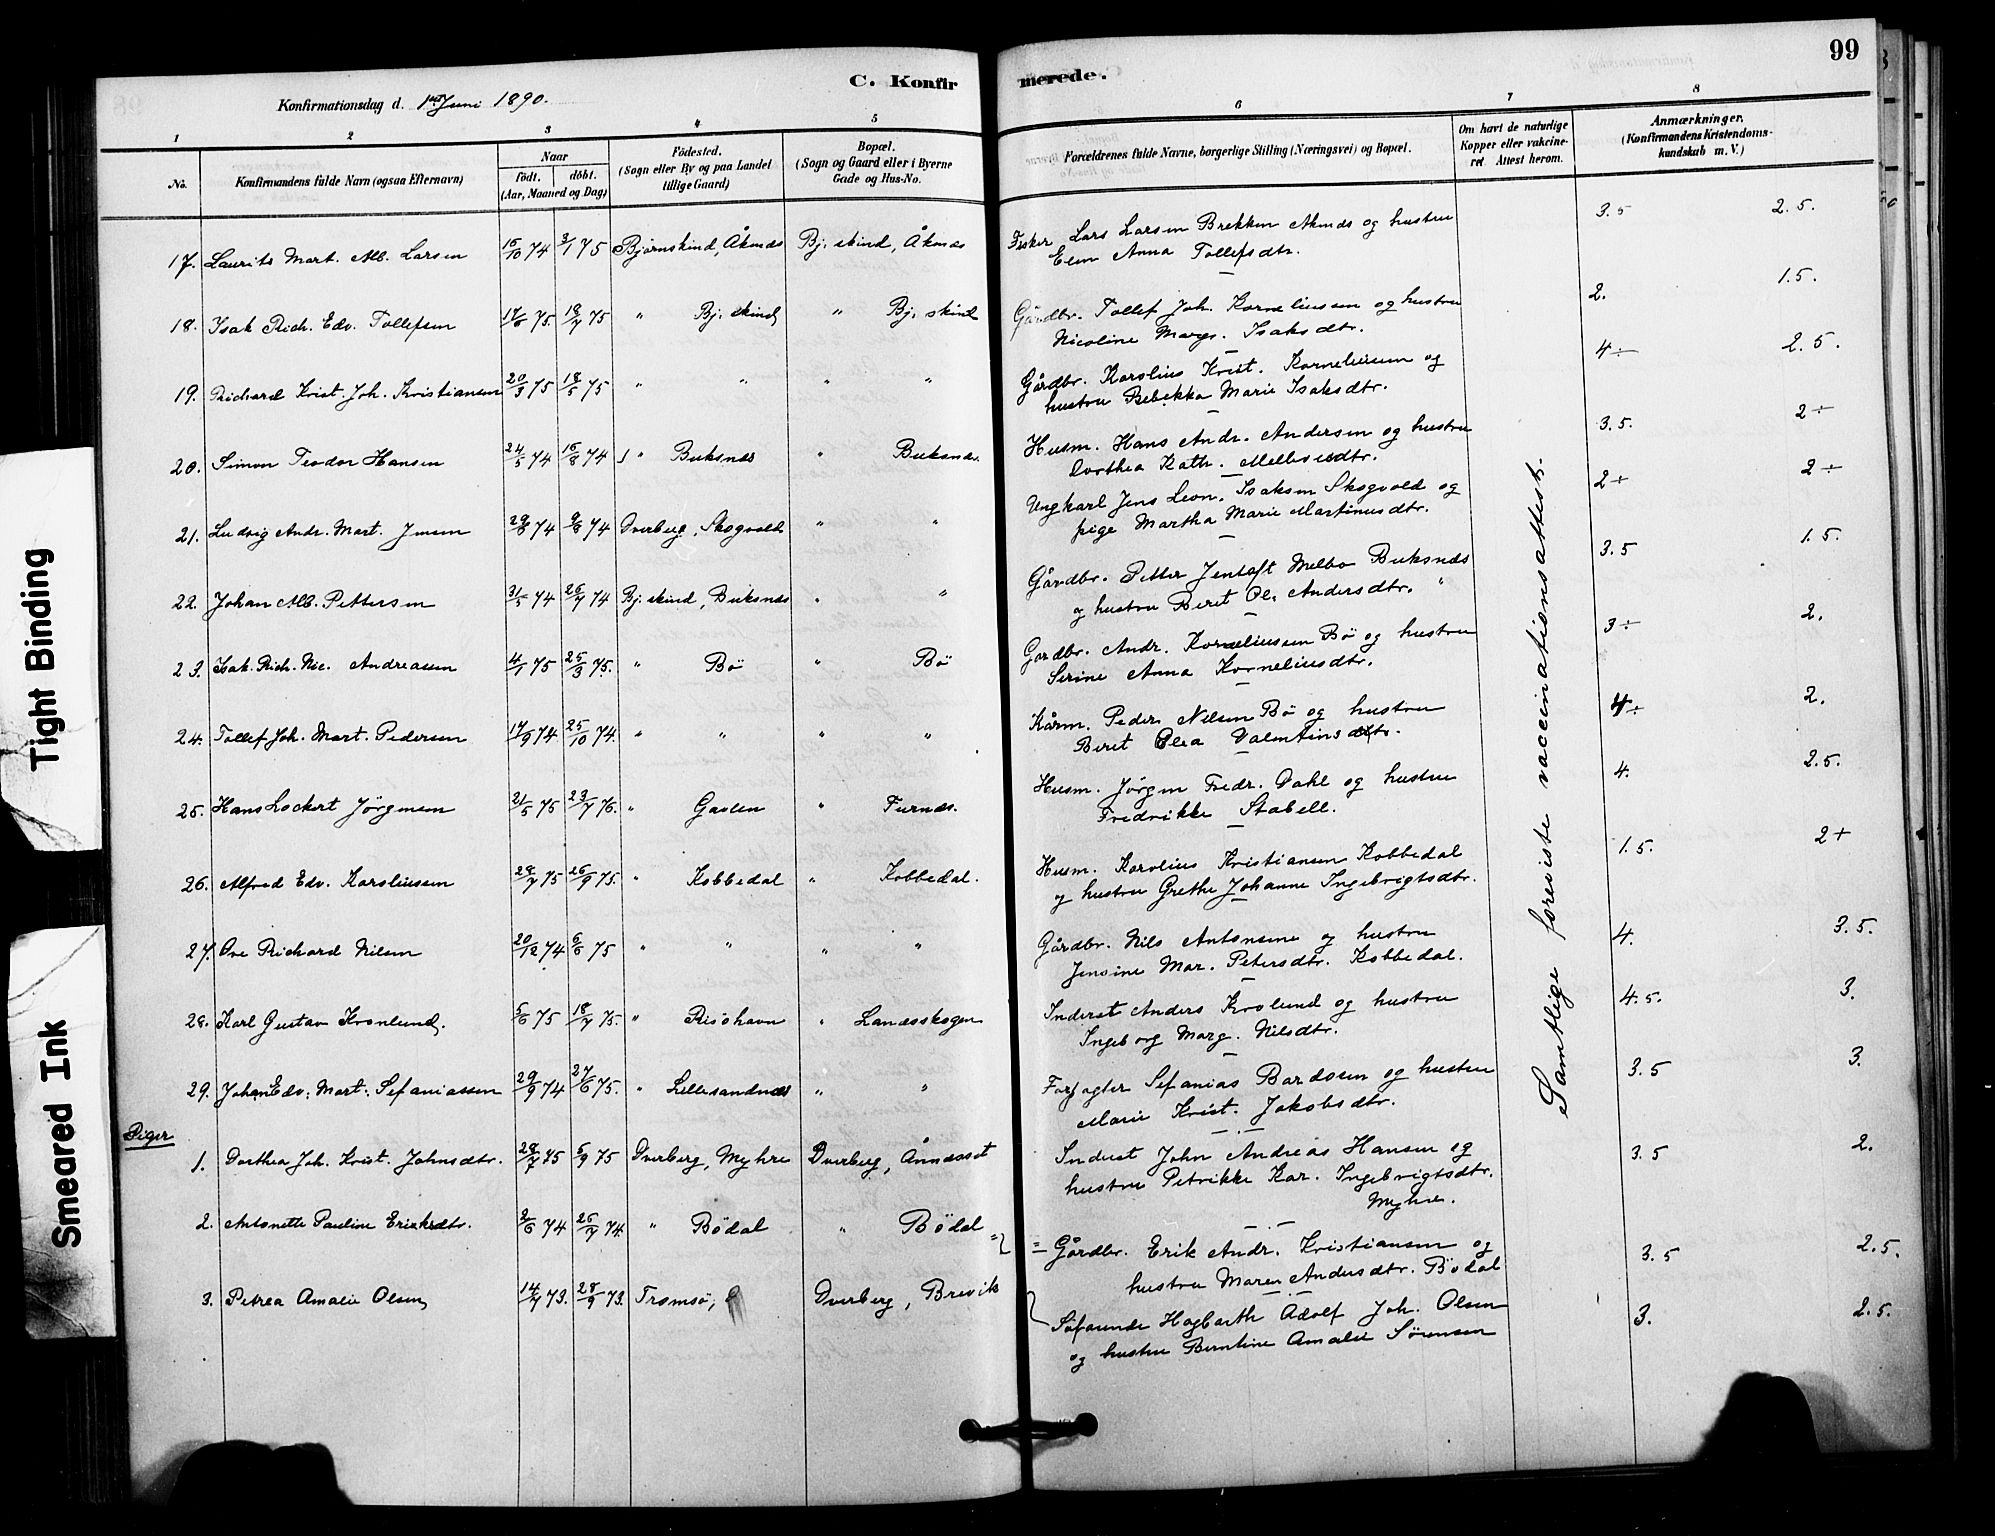 99
C. Konfirmerede.
Konfirmationsdag d. 1ste Juni 1890.
1 2 3 4 5 6 7 8
No.
Konfirmandens fulde Navn (ogsaa Efternavn)
Naar
födt. döbt.
(Aar, Maaned og Dag)
Födested.
(Sogn eller By og paa Landet
tillige Gaard)
Bopæl.
(Sogn og Gaard eller i Byerne
Gade og Hus-No.
Forældrenes fulde Navne, borgerlige Stilling (Næringsvei) og Bopæl.
Om havt de naturlige
Kopper eller vakcine-
ret. Attest herom.
Anmærkninger.
(Konfirmandens Kristendoms-
kundskab m. V.)
17. Laurits Mart. Alb. Larsen 16/10 74 3/1 75 Bjørnskind, Åknes Bj. skind, Åknes Fisker Lars Larsen Brekken Aknes og hustru 3.5 2.5.
Elen Anna Tollefsdtr.
18. Isak Rich. Edv. Tollefsen 17/6 75. 18/7 75 " Bj. skind " Bj. skind Gårdbr. Tollef Joh. Korneliussen og hustru 2. 1.5.
Nicoline Marg. Isaksdtr.
19. Richard Krist. Joh. Kristiansen 20/3 75 18/5 75 " " " " Gårdbr. Karolius Krist. Korneliussen og 4÷ 2.5.
hustru Rebekka Marie Isaksdtr.
20. Simon Teodor Hansen 24/5 74 16/8 74 " Buksnes " Buksnes. Husm. Hans Andr. Andersen og hustru 3.5. 2÷
Dorthea Kath. Mellesdtr.
21. Ludvig Andr. Mart. Jensen 29/6 74 9/8 74 Dverberg, Skogvold " " Ungkarl Jens Leon. Isaksen Skogvold og 2+ 2÷
pige Martha Marie Martinusdtr.
22. Johan Alb. Pettersen 31/5 74 26/7 74 Bj. skind, Buksnes " " Gårdbr. Petter Jentoft Melbo Buksnes 3.5 1.5.
og hustru Beret Ol. Andersdtr. "
23. Isak Rich. Nic. Andreassen 4/1 75 25/3 75. " Bö " Bö Gardbr. Andr. Korneliussen Bö og hustru 3÷ 2.
Serine Anna Korneliusdtr.
24. Tollef Joh. Mart. Pedersen 17/9 74 25/10 74. " " " " Kårm. Peder Nilsen Bö og hustru 4÷ 2.
Beret Olea Valentinsdtr.
25. Hans Lockert Jörgensen 21/5 75 23/7 76. " Gavlen " Furnes. Husm. Jörgen Fredr. Dahl og hustru 4. 2.5.
Fredrikke Stabell.
26. Alfred Edv. Karoliussen 29/7 75 26/9 75. " Kobbedal " Kobbedal. Husm. Karolius Kristiansen Kobbedal 1.5. 2+
og hustru Grethe Johanne Ingebrigtsdtr.
27. Ove Richard Nilsen 20/12 74 6/6 75 " " " " Gårdbr. Nils Antonsen og hustru 4. 3.5.
Jensine Mar. Petersdtr. Kobbedal.
28. Karl Gustav Kronlund. 5/6 75 18/7 75. " Risöhavn " Landsskogen Inderst Anders Krolund og hustru 4.5. 3.
Ingeborg Marg. Nilsdtr.
29. Johan Edv. Mart. Sefaniassen 29/9 74 27/6 75. " Lillesandnes " " Forpagter Sefanias Bardosen og hustru 3.5 3.
Marie Krist. Jakobsdtr.
Piger
1. Dorthea Joh. Krist. Johnsdtr. 28/7 75 5/9 75 Dverberg, Myhre Dverberg, Åndesset Inderst John Andreas Hansen og 3.5 2.
hustru Petrikke Kar. Ingebrigtsdtr.
Myhre.
2. Antonette Pauline Eriksdtr. 2/6 74 26/7 74. " Bödal " Bödal = Gårdbr. Erik Andr. Kristiansen og 3.5 2.5.
hustru Maren Andersdtr. Bödal
3. Petrea Amalie Olsen 14/7 73. 28/9 73. Tromsö, Dverberg, Brevik Söfarende Hagbarth Adolf Joh. Olsen 3. 2.5.
og hustru Berntine Amalie Sörensen
Samtlige foreviste vaccinationsattest.
Tight Binding
Smeared Ink